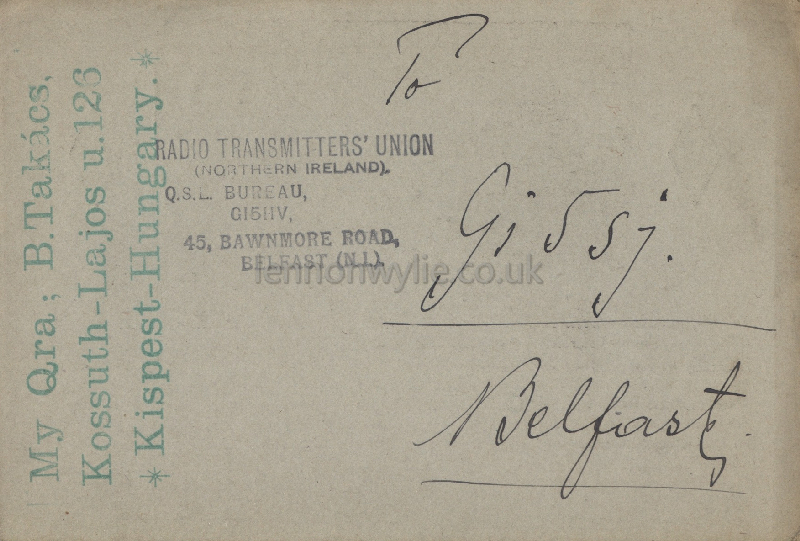 My Qra; B.Takács,
Kossuth-Lajos u.126
* Kispest-Hungary. *
To
RADIO TRANSMITTERS' UNION
(NORTHERN IRELAND).
Q.S.L. BUREAU,
GI5HV,
45, BAWNMORE ROAD,
BELFAST (N.I.).
Gi 5 sj.
Belfast.
lennonwylie.co.uk